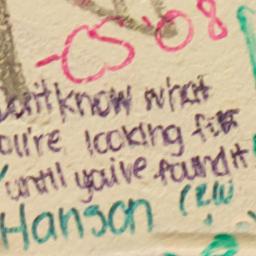 -CS '08
don't know what
ou're looking for
until you've found it
Hanson